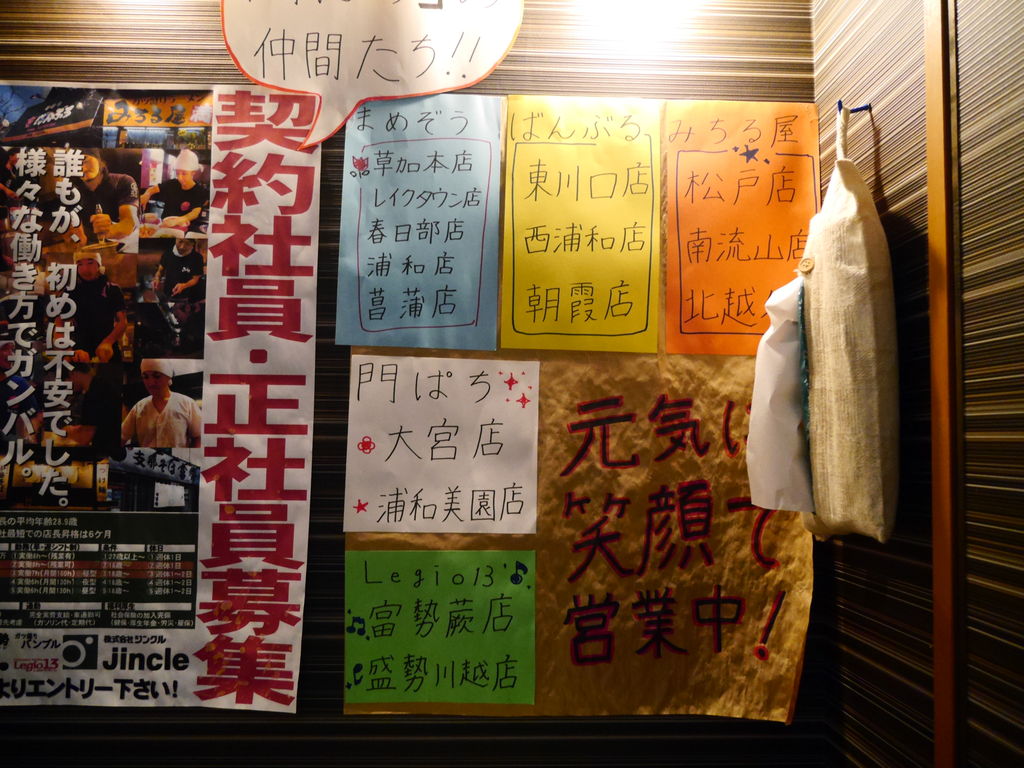 仲間たち!!
まめぞう
草加本店
レイクタウン店
春日部店
浦和店
菖蒲店
ばんぶる
東川口店
西浦和店
朝霞店
みちる屋
松戸店
南流山店
北越
門ぱち
大宮店
浦和美園店
Legio13
富勢蕨店
盛勢川越店
元気に
笑顔で
営業中!
契約社員・正社員募集
みちる屋
誰もが、初めは不安でした。
様々な働き方でガンバル。
長の平均年齢28.9歳
社最短での店長昇格は6ケ月
バンブル
Legio13
株式会社ジンクル
Jincle
よりエントリー下さい!